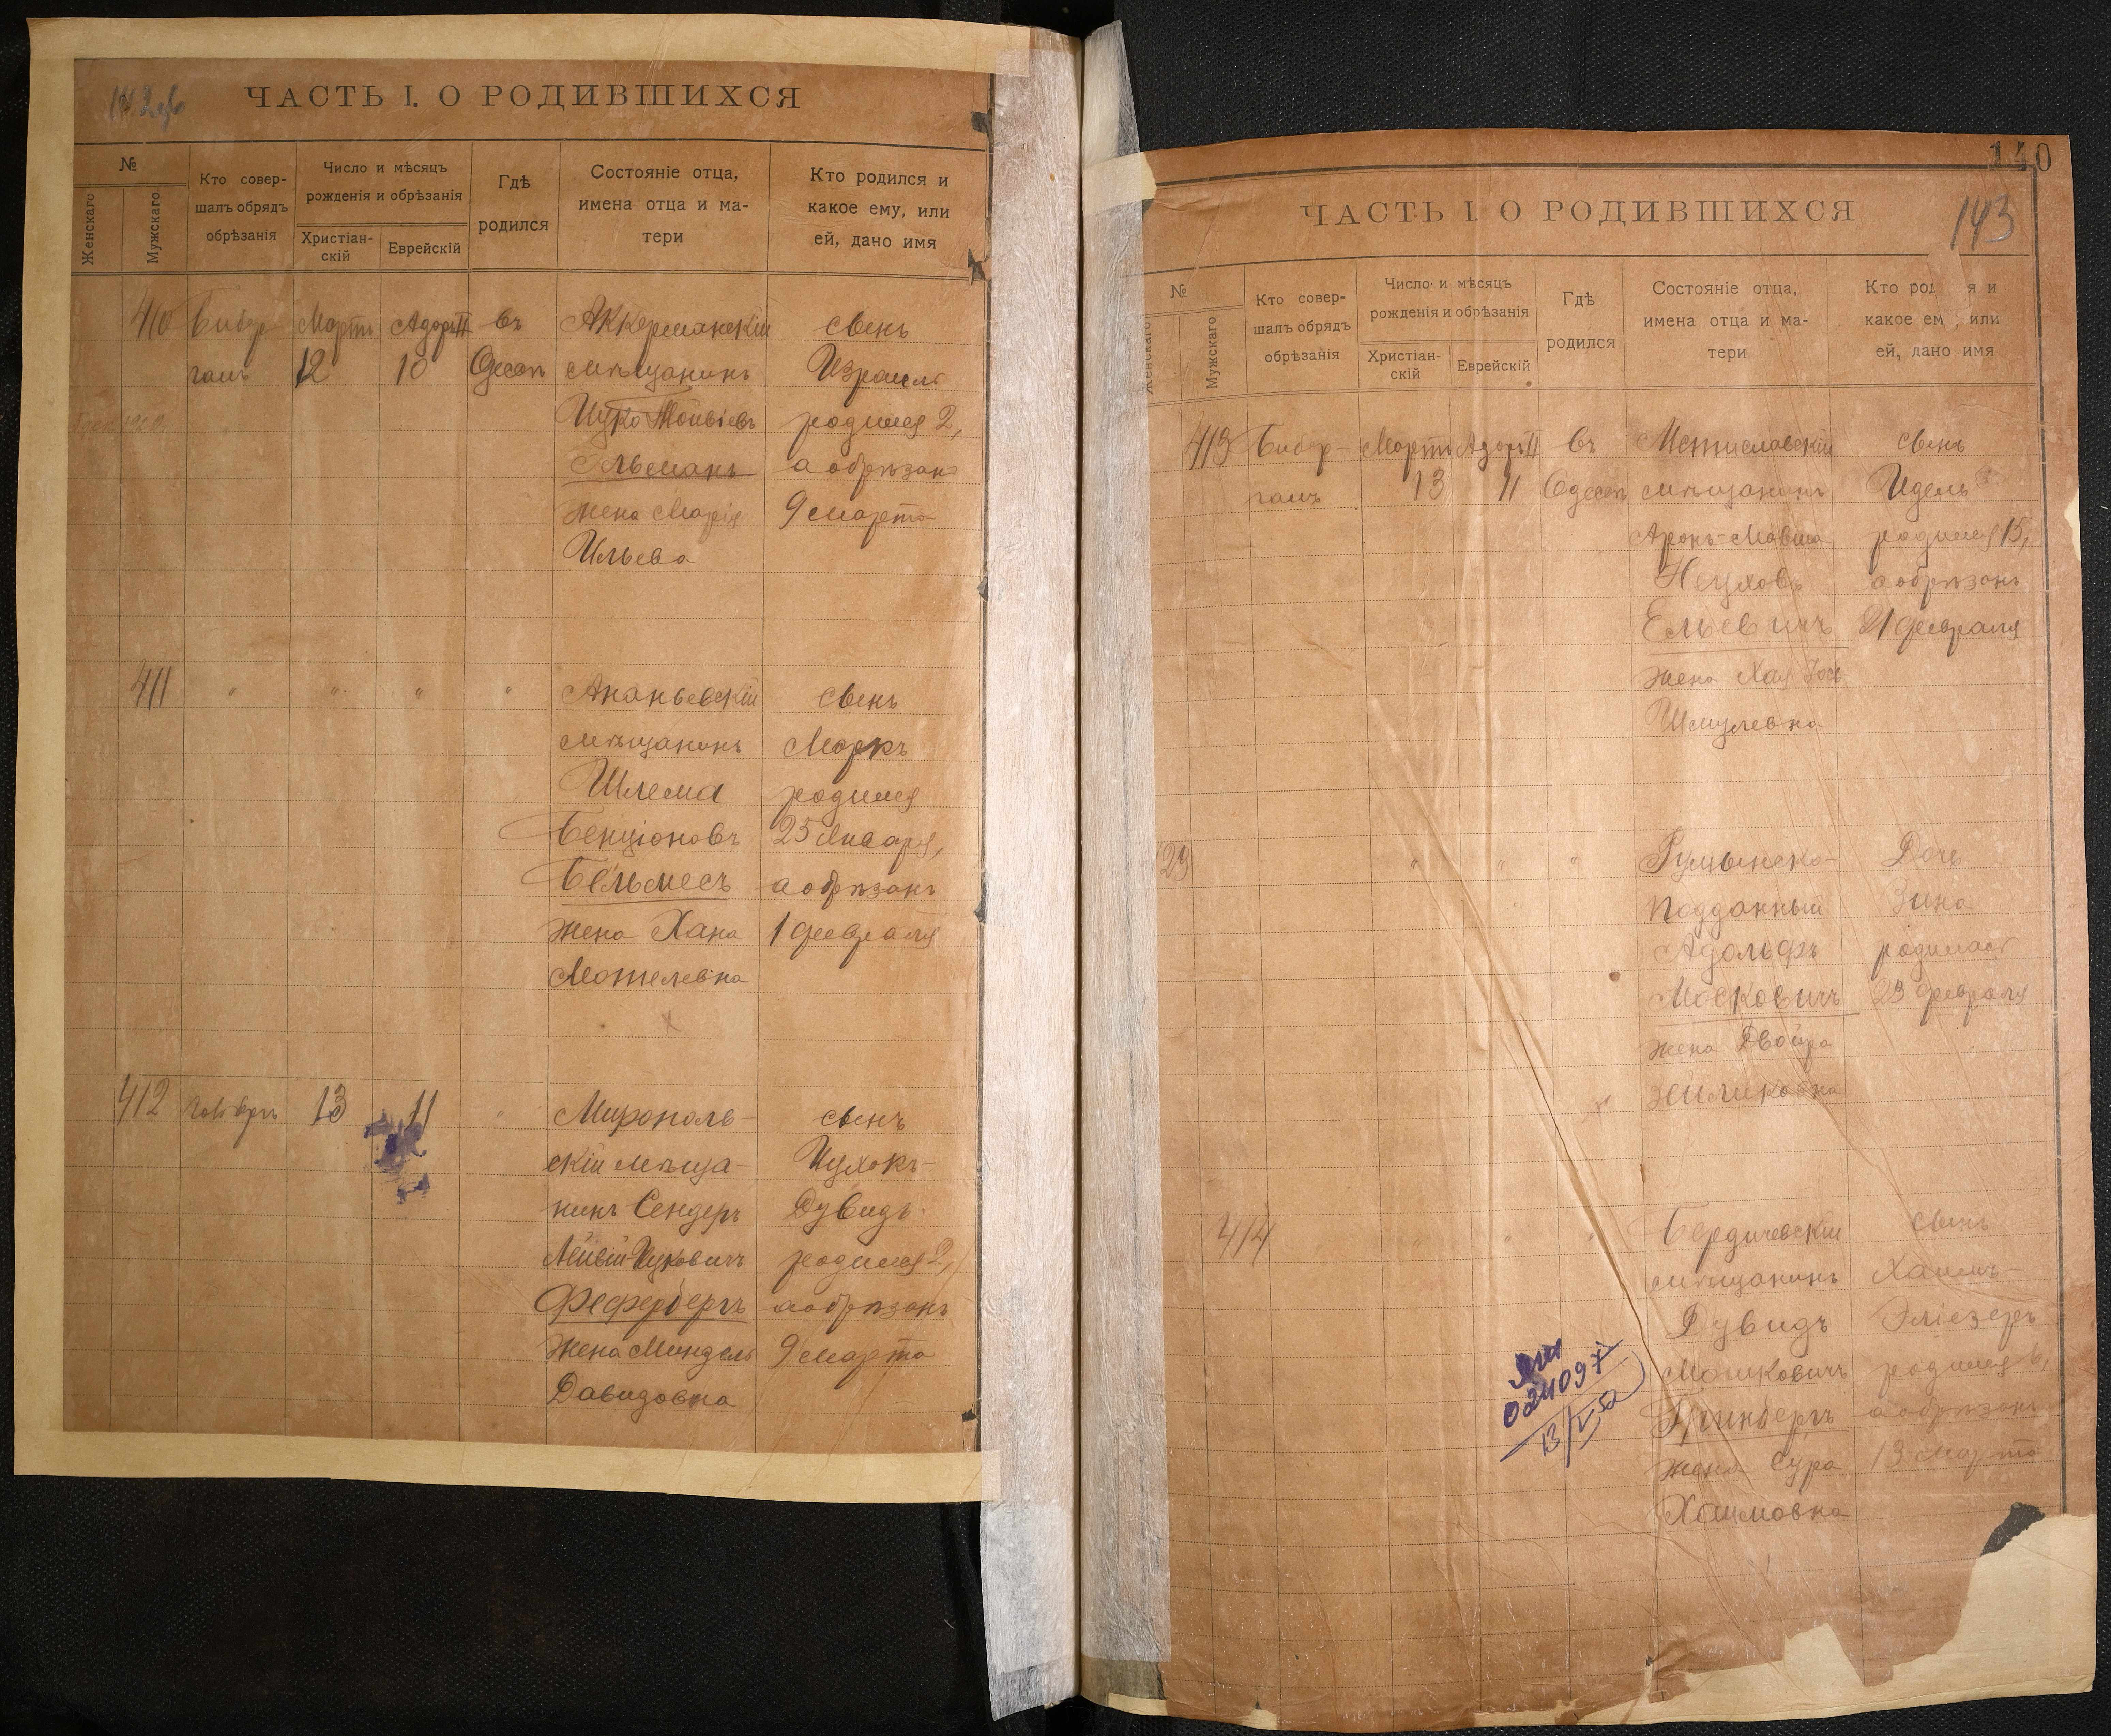 ЧАСТЬ I. О РОДИВШИХСЯ
№
Женскаго
Мужскаго
Кто совер-
шалъ обрядъ
обрѣзанія
Число и мѣсяцъ
рожденія и обрѣзанія
Христіан-
скій
Еврейскій
Гдѣ
родился
Состояніе отца,
имена отца и ма-
тери
Кто родился и
какое ему, или
ей, дано имя
410
Мартъ
12
Адаръ II
10
въ
Одессѣ
Аккерманскій
мѣщанинъ
Ицко
Эльманъ
жена Марія
Ильева
сынъ
Израиль
родился 2,
а обрѣзанъ
9 марта
411
"
"
"
"
Ананьевскій
мѣщанинъ
Шлема
Бенціоновъ
Бельмесъ
жена Хана
Мотелевна
сынъ
Маркъ
родился
25 Января,
а обрѣзанъ
1 февраля
412
13
11
"
Мирополь-
скій мѣща-
нинъ Сендеръ
Ицковичъ
Фефербергъ
жена Миндель
Давидовна
сынъ
Ицхокъ-
Дувидъ
родился 2,
а обрѣзанъ
9 марта
140
143
ЧАСТЬ I. О РОДИВШИХСЯ
№
Женскаго
Мужскаго
Кто совер-
шалъ обрядъ
обрѣзанія
Число и мѣсяцъ
рожденія и обрѣзанія
Христіан-
скій
Еврейскій
Гдѣ
родился
Состояніе отца,
имена отца и ма-
тери
Кто род я и
какое ем , или
ей, дано имя
413
Мартъ
13
Адаръ II
11
въ
Одессѣ
Мстиславскій
мѣщанинъ
Аронъ-Мовша
Нехуховъ
Ельевичъ
жена Хая
Шмулевна
сынъ
Идель
родился 15,
а обрѣзанъ
21 февраля
29
"
"
"
Румынско-
подданный
Адольфъ
Московичъ
жена Двойра
Дочь
Зина
родилась
23 февраля
414
"
"
"
Бердичевскій
мѣщанинъ
Дувидъ
Мошковичъ
Гринбергъ
жена Сура
Хаимовна
сынъ
Хаимъ-
Эліезеръ
родился 6,
а обрѣзанъ
13 марта
024097
13/V-52